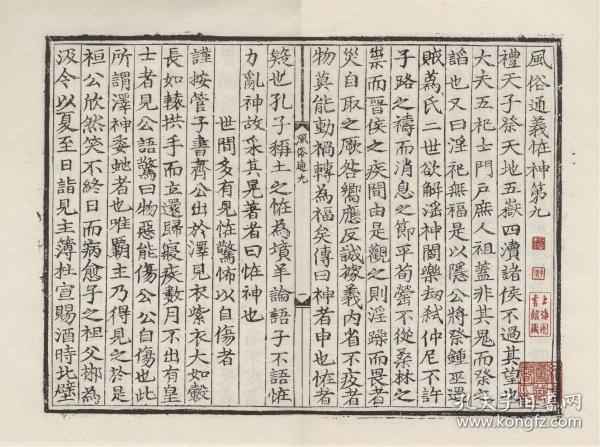 風俗通義恠神第九
上海圖
書館藏
禮天子祭天地五嶽四瀆諸侯不過其望也
大夫五祀士門戶庶人祖蓋非其鬼而祭之
謟也又曰淫祀無福是以隱公將祭鍾巫遇
賊蒍氏二世欲解淫神閻樂刼弑仲尼不許
子路之禱而消息之節平荀罃不從桑林之
祟而晉侯之疾間由是觀之則淫躁而畏者
災自取之厥咎嚮應反誠據義內省不疚者
物莫能動禍轉為福矣傳曰神者申也恠者
風俗通九
一
疑也孔子稱土之恠為墳羊論語子不語恠
力亂神故采其晃著者曰恠神也
世間多有見恠驚怖以自傷者
謹按管子書齊公出於澤見衣紫衣大如轂
長如轅拱手而立還歸寢疾數月不出有皇
士者見公語驚曰物惡能傷公公自傷也此
所謂澤神委虵者也唯霸主乃得見之於是
桓公欣然笑不終日而病愈予之祖父郴為
汲令以夏至日詣見主簿杜宣賜酒時北壁
孔夫子旧书网
kongfz.com